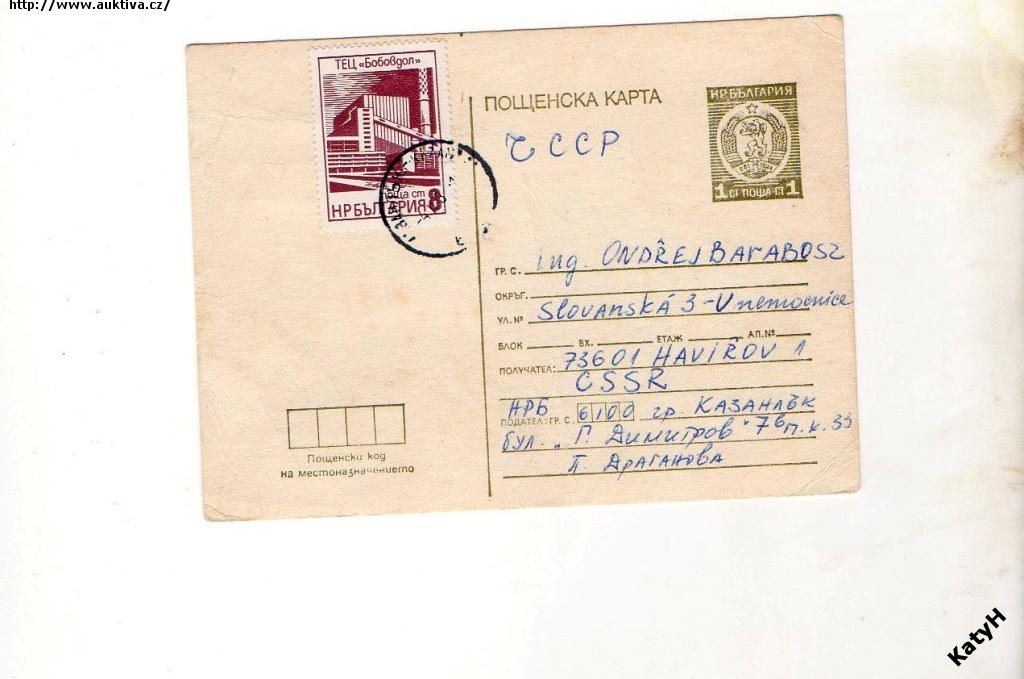 http://www.auktiva.cz/
ТЕЦ «Бобовдол»
поща ст 8
НРБЪЛГАРИЯ
ПОЩЕНСКА КАРТА
НРБЪЛГАРИЯ
1 СТ ПОЩА СТ 1
ČCCP
ГР. С. ing. ONDŘEJ BARABOSZ
ОКРЪГ.
УЛ. № Slovanská 3-U nemocnice
БЛОК ВХ. ЕТАЖ АП.№
ПОЛУЧАТЕЛ: 73601 HAVÍŘOV 1
ČSSR
НРБ
ПОДАТЕЛ: ГР. С. 6100 гр. КАЗАНЛЪК
бул. „Г. Димитров" 7б п.к. 33
П. Драганова
Пощенски код
на местоназначението
KatyH